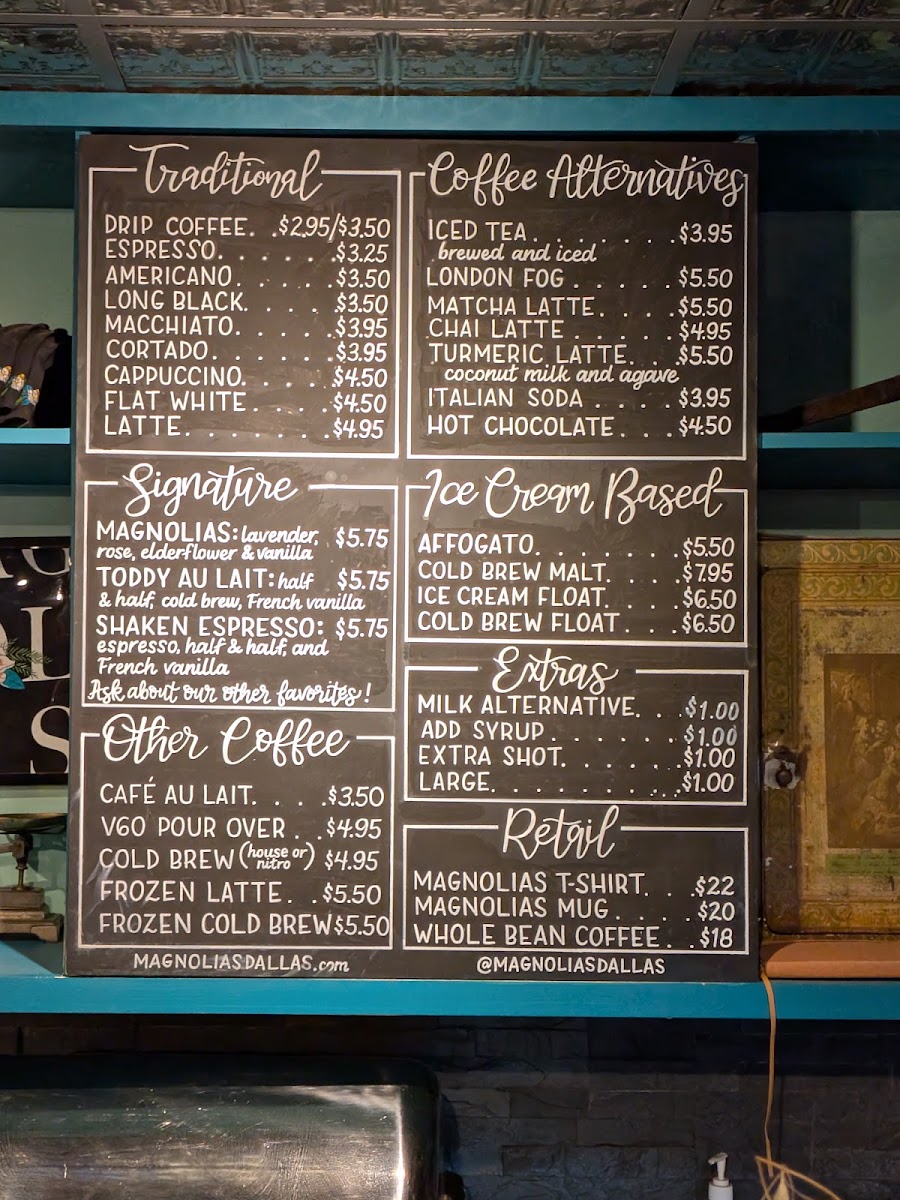 Traditional
DRIP COFFEE. .$2.95/$3.50
ESPRESSO. . . . . . .$3.25
AMERICANO . . . . .$3.50
LONG BLACK. . . . .$3.50
MACCHIATO. . . . . $3.95
CORTADO. . . . . . .$3.95
CAPPUCCINO. . . . .$4.50
FLAT WHITE. . . . .$4.50
LATTE. . . . . . . . $4.95
Signature
MAGNOLIAS: lavender, $5.75
rose, elderflower & vanilla
TODDY AU LAIT: half $5.75
& half, cold brew, French vanilla
SHAKEN ESPRESSO: $5.75
espresso, half & half, and
French vanilla
Ask about our other favorites!
Other Coffee
CAFÉ AU LAIT. . . .$3.50
V60 POUR OVER . .$4.95
COLD BREW (house or nitro) $4.95
FROZEN LATTE. . .$5.50
FROZEN COLD BREW$5.50
MAGNOLIASDALLAS.com
Coffee Alternatives
ICED TEA . . . . . . . .$3.95
brewed and iced
LONDON FOG . . . . . $5.50
MATCHA LATTE. . . . .$5.50
CHAI LATTE . . . . . .$4.95
TURMERIC LATTE. . .$5.50
coconut milk and agave
ITALIAN SODA . . . . .$3.95
HOT CHOCOLATE. . . .$4.50
Ice Cream Based
AFFOGATO. . . . . . . .$5.50
COLD BREW MALT. . . . .$7.95
ICE CREAM FLOAT. . . . .$6.50
COLD BREW FLOAT . . . .$6.50
Extras
MILK ALTERNATIVE. . .$1.00
ADD SYRUP . . . . . . .$1.00
EXTRA SHOT. . . . . . .$1.00
LARGE. . . . . . . . . .$1.00
Retail
MAGNOLIAS T-SHIRT. . .$22
MAGNOLIAS MUG . . . . .$20
WHOLE BEAN COFFEE. . .$18
@MAGNOLIASDALLAS